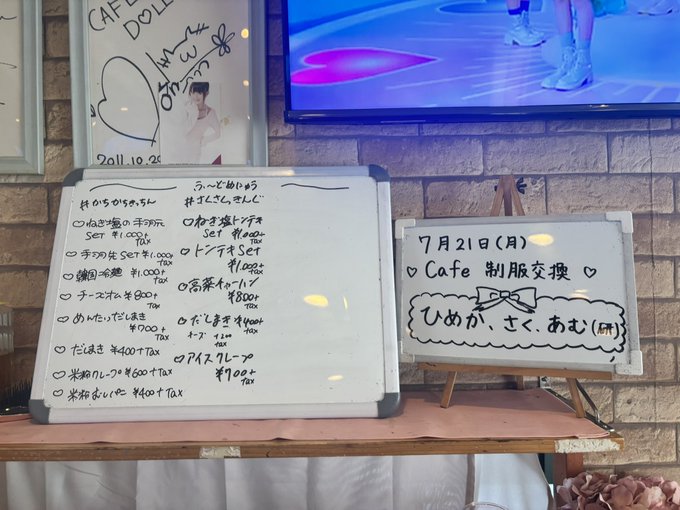 CAFE
DOLL
2011.10.20
ふ〜どめにゅう
#かちかちきっちん
♡ねぎ塩の手羽元
SET ¥1.000+
Tax
♡手羽先SET ¥1.000+
Tax
♡韓国冷麺 ¥1.000+
Tax
♡チーズオム ¥800+
Tax
♡めんたいだしまき
¥700+
Tax
♡だしまき ¥400+Tax
♡米粉クレープ ¥600+Tax
♡米粉むしパン ¥400+Tax
#さくさくっきんぐ
♡ねぎ塩トンテキ
Set ¥1,000+
Tax
♡トンテキSet
¥1,000+
Tax
♡高菜チャーハン
¥800+
Tax
♡だしまき ¥400+
Tax
チーズ +200
Tax
♡アイスクレープ
¥700+
Tax
7月21日(月)
♡ Cafe 制服交換 ♡
ひめか、さく、あむ(研)